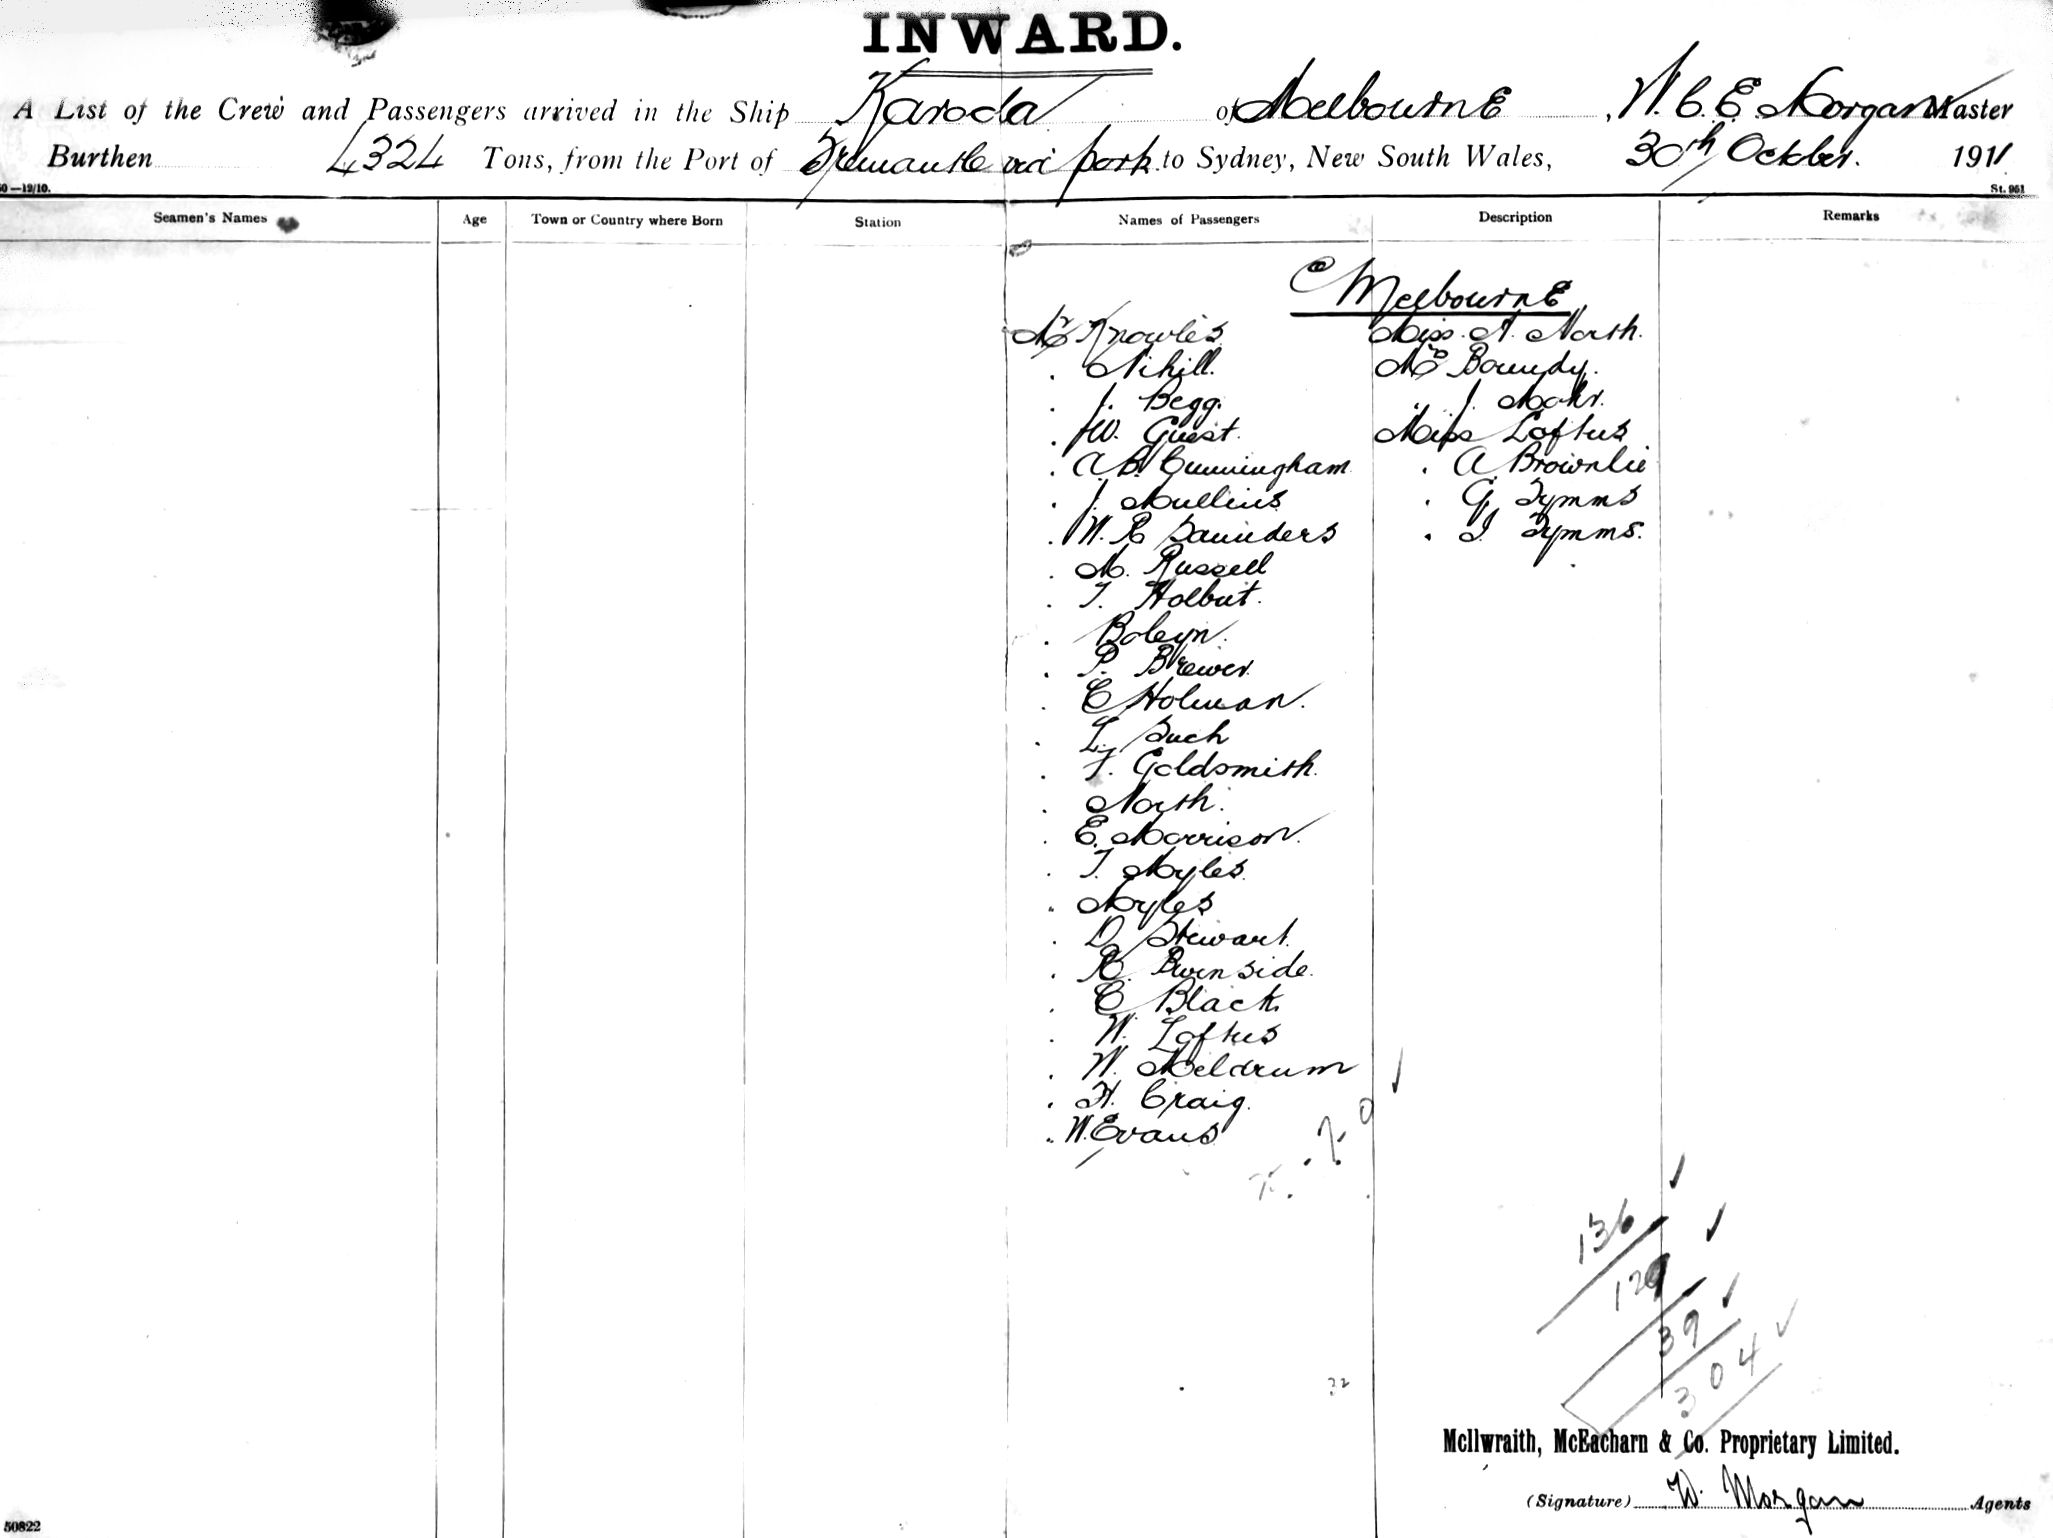 INWARD.
A List of the Crew and Passengers arrived in the Ship Karoola of Melbourne, W. C. E. Morgan Master
Burthen 4324 Tons, from the Port of Fremantle via ports to Sydney, New South Wales, 30th October. 1911
50—12/10. St. 961
Seamen's Names Age Town or Country where Born Station Names of Passengers Description Remarks
Melbourne
Mr Knowles Miss A. North.
. Nihill. Mr Boundy.
. J. Begg. " J. Mohr.
. W. Guest. Miss Loftus
. A. B. Cunningham . A. Brownlie
. J. Mullins . G. Tymms
. W. R. Saunders . I. Tymms.
. M. Russell
. T. Holbut.
. Boleyn.
. P. Brewer.
. C Holman.
. L. Such
. F. Goldsmith.
. North.
. E. Morrison.
. T. Myles.
" Myles
. D. Stewart.
. R. Burnside.
. C Black.
. W. Loftus
. W. Meldrum
. H. Craig.
" W. Evans
136
129
39
304
McIlwraith, McEacharn & Co. Proprietary Limited.
(Signature) W. Morgan Agents
50822